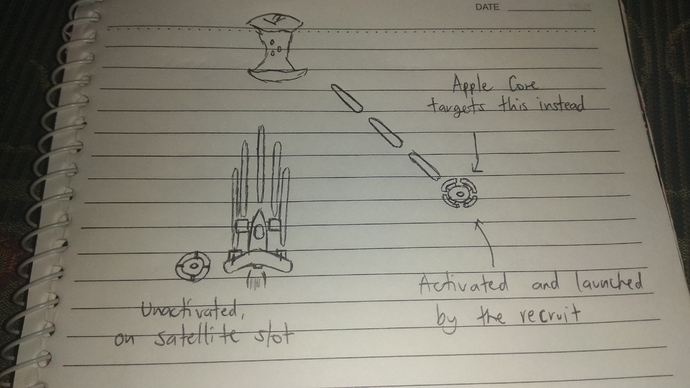 DATE
Apple Core
targets this instead
Activated and launched
by the recruit
Unactivated,
on satellite slot